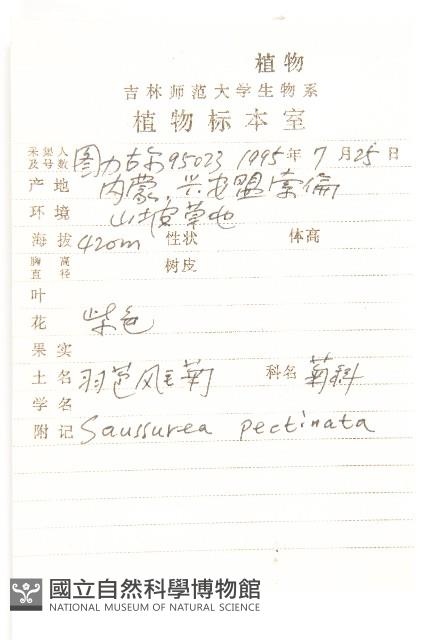 植物
吉林师范大学生物系
植物标本室
采集人及号数 图力古尔95023 1995年7月25日
产地 内蒙,兴安盟索倫
环境 山坡草地
海拔 420m 性状 体高
胸高直径 树皮
叶
花 紫色
果实
土名 羽苞风毛菊 科名 菊科
学名
附记 Saussurea pectinata
國立自然科學博物館
NATIONAL MUSEUM OF NATURAL SCIENCE